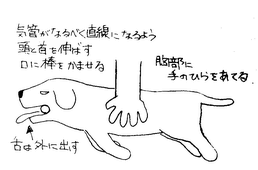 気管がなるべく直線になるよう
頭と首を伸ばす
口に棒をかませる
胸部に
手のひらをあてる
舌は外に出す